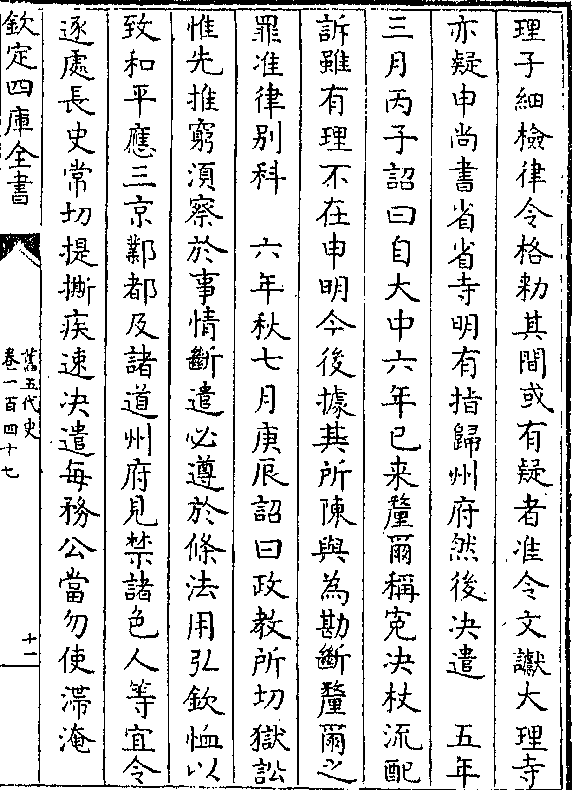 理子細檢律令格勑其間或有疑者准令文讞大理寺
亦疑申尚書省省寺明有指歸州府然後决遣　五年
三月丙子詔曰自大中六年已来𠩺爾稱寃决杖流配
訴雖有理不在申明今後據其所陳與為勘斷𠩺爾之
罪准律别科　六年秋七月庚辰詔曰政教所切獄訟
惟先推窮湏察於事情斷遣必遵於條法用弘欽恤以
致和平應三京鄴都及諸道州府見禁諸色人等宜令
逐處長史常切提撕疾速决遣每務公當勿使滯淹
欽定四庫全書
舊五代史
卷一百四十七
十一